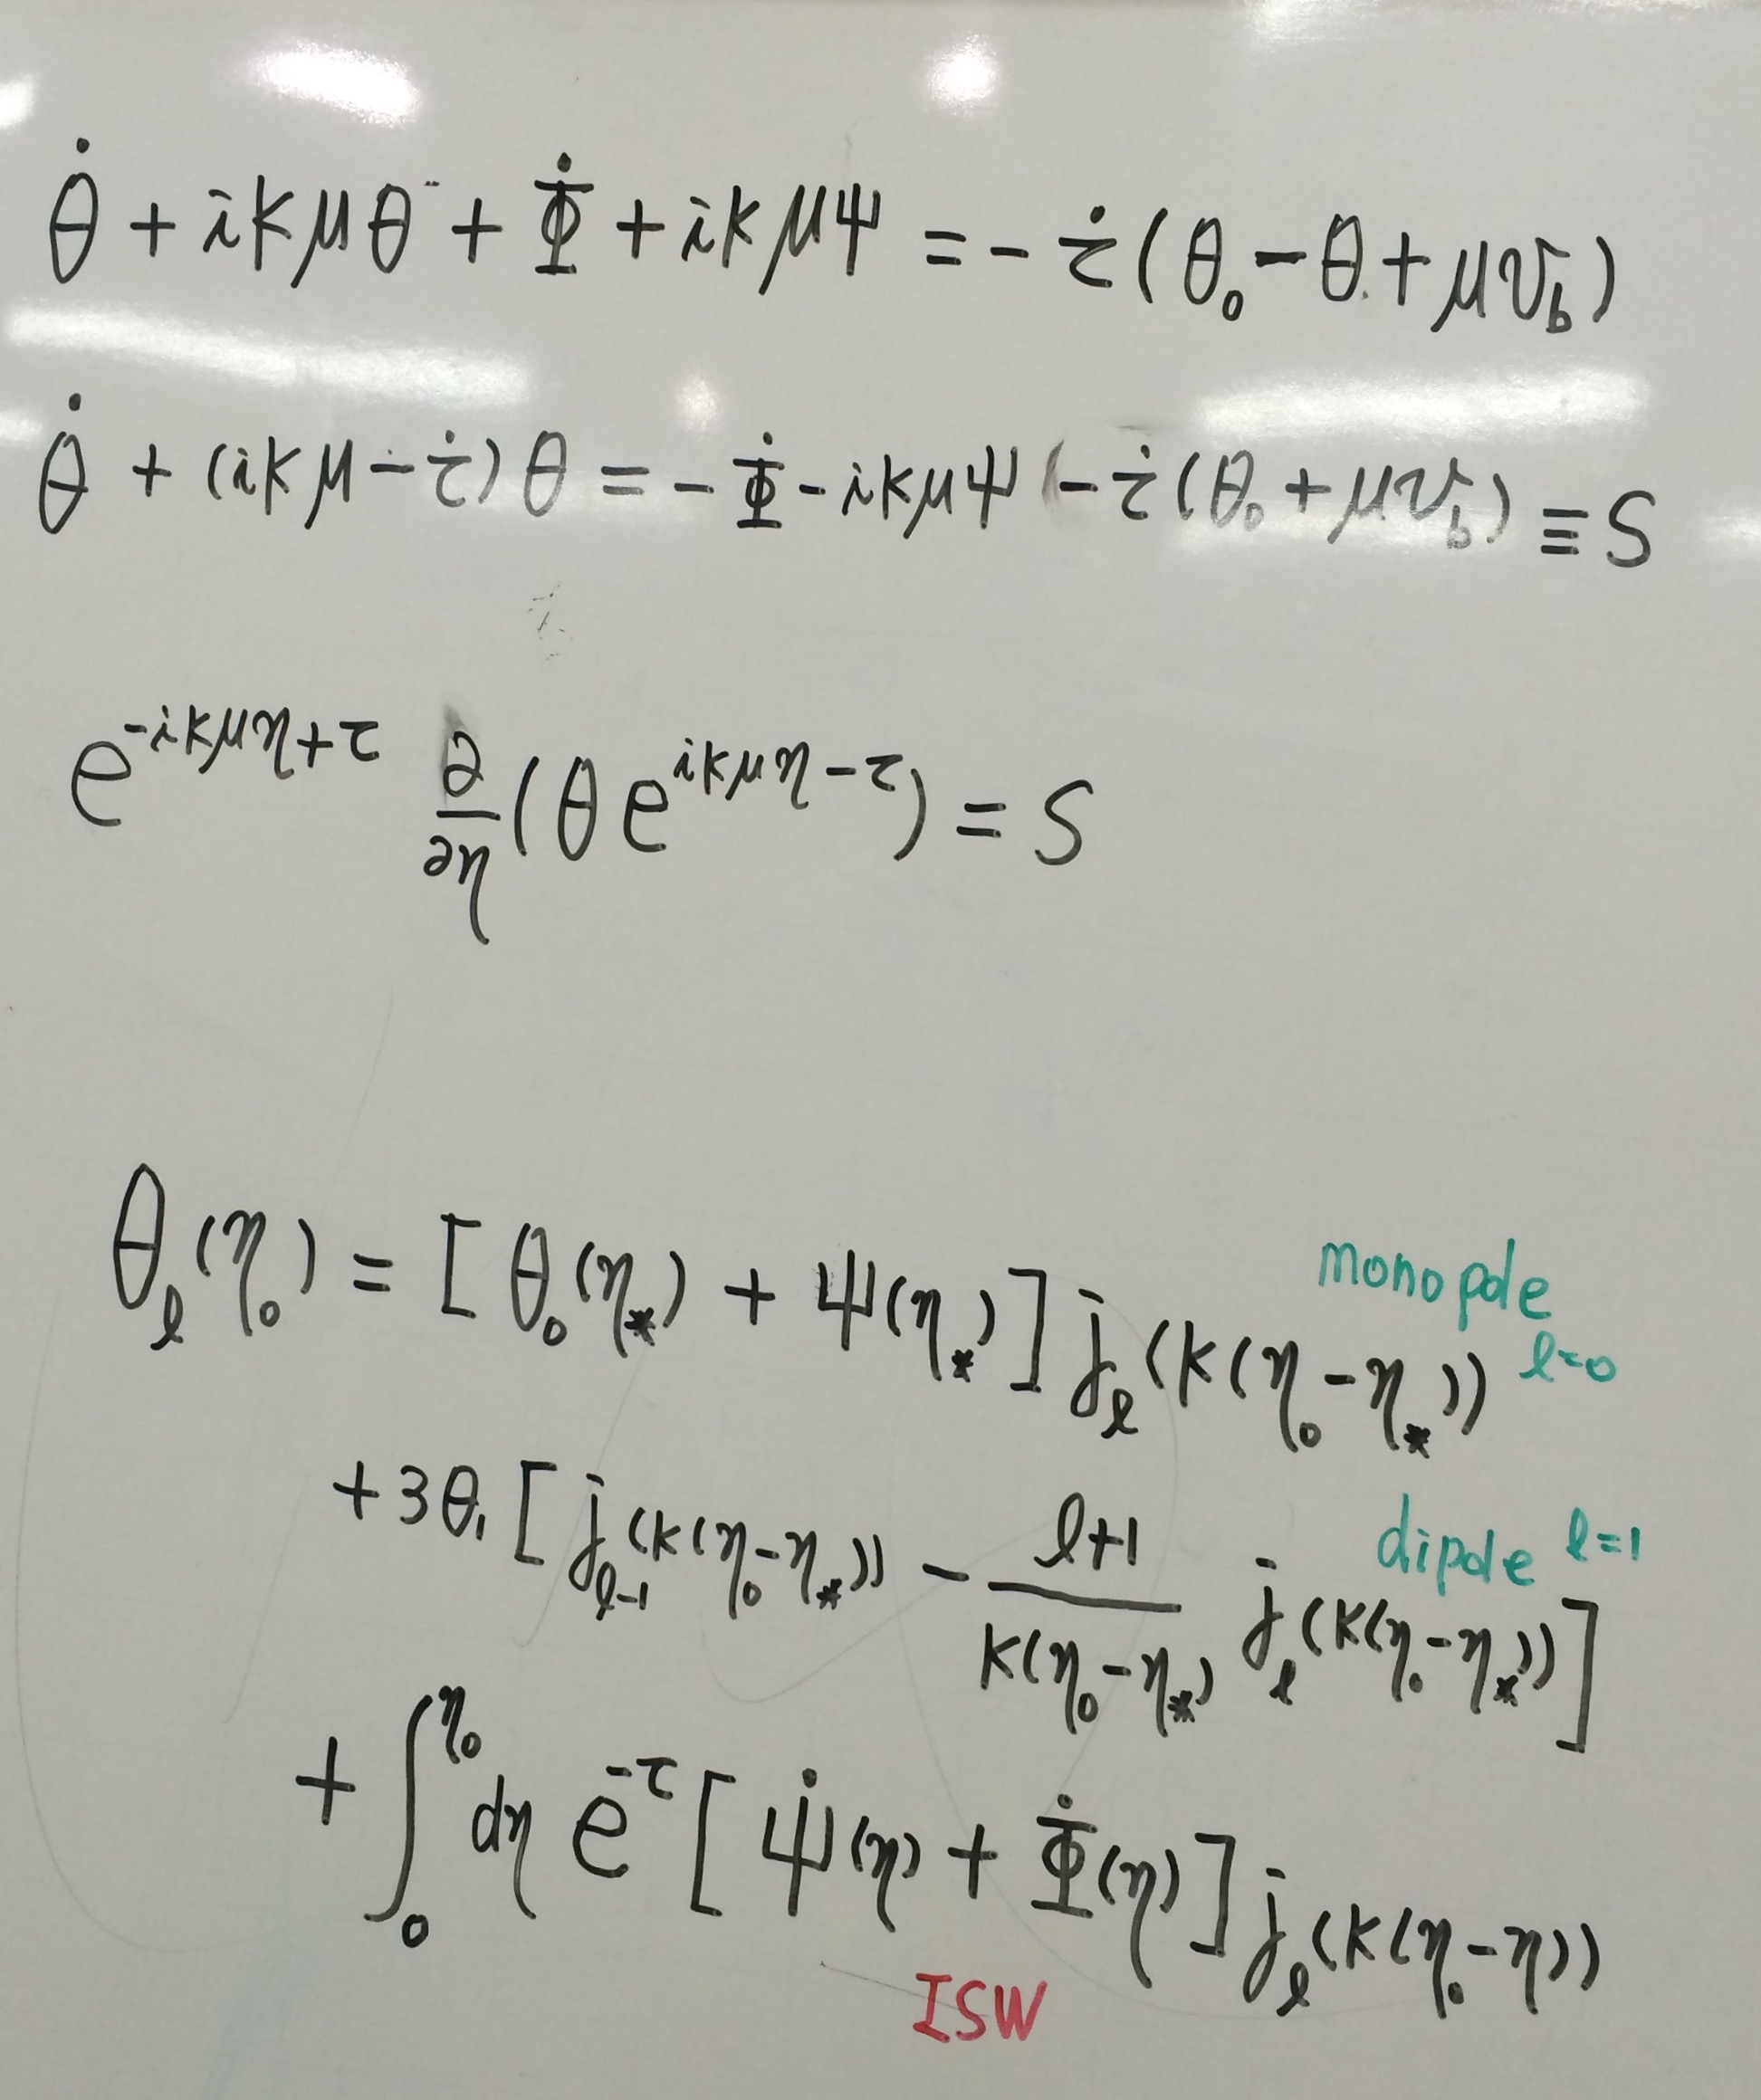 θ̇ + ikμθ + Φ̇ + ikμψ = -τ̇(θ₀ - θ + μv_b)
θ̇ + (ikμ - τ̇)θ = -Φ̇ - ikμψ - τ̇(θ₀ + μv_b) ≡ S
e^{-ikμη+τ} ∂/∂η (θ e^{ikμη-τ}) = S
θ_ℓ(η₀) = [θ₀(η_*) + ψ(η_*)] j_ℓ(k(η₀ - η_*)) monopole ℓ=0
+ 3θ₁ [j_{ℓ-1}(k(η₀ - η_*)) - (ℓ+1)/(k(η₀ - η_*)) j_ℓ(k(η₀ - η_*))] dipole ℓ=1
+ ∫₀^{η₀} dη e^{-τ} [ψ̇(η) + Φ̇(η)] j_ℓ(k(η₀ - η))
ISW